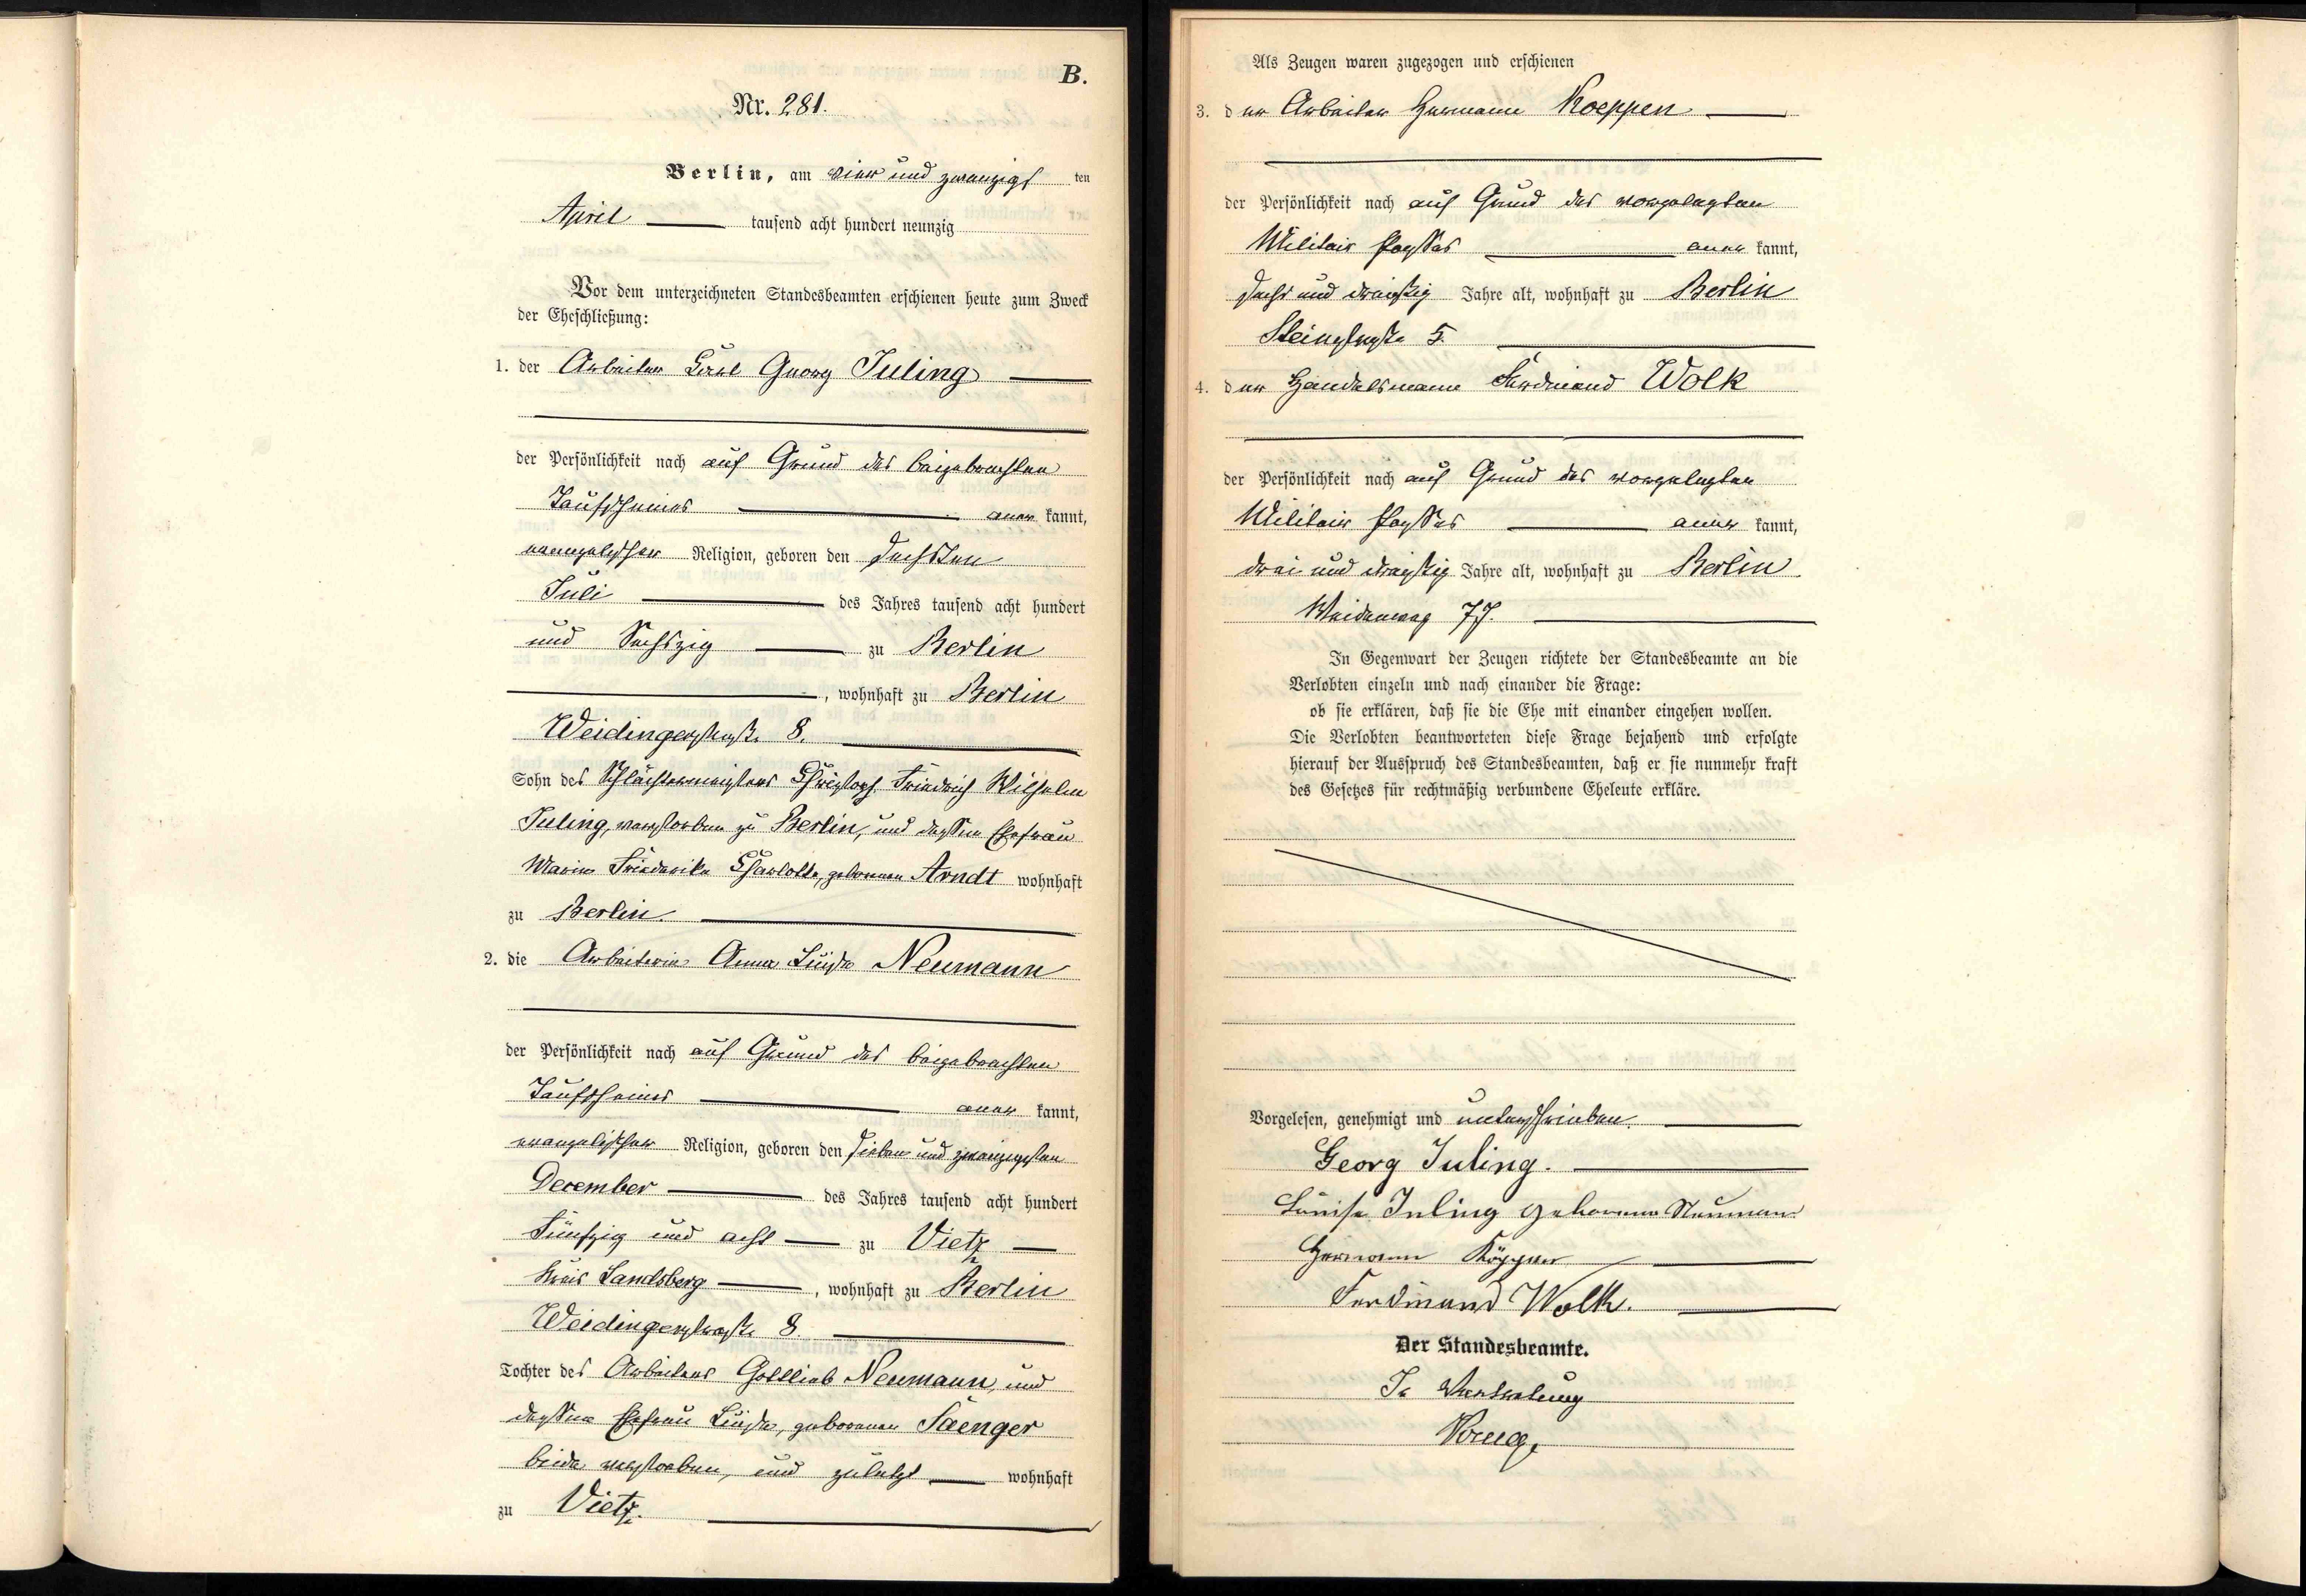 B.
Nr. 281.
Berlin, am vier und zwanzigs ten
April tausend acht hundert neunzig
Vor dem unterzeichneten Standesbeamten erschienen heute zum Zweck
der Eheschließung:
1. der Arbeiter Carl Georg Juling
der Persönlichkeit nach auf Grund des beigebrachten
Taufscheines aner kannt,
evangelischer Religion, geboren den sechsten
Juli des Jahres tausend acht hundert
und sechszig zu Berlin
, wohnhaft zu Berlin
Weidingerstraße 8.
Sohn des Schlächtermeisters Christoph Friedrich Wilhelm
Juling, verstorben zu Berlin, und dessen Ehefrau
Marie Friederike Charlotte, geborenen Arndt wohnhaft
zu Berlin.
2. die Arbeiterin Anna Luise Neumann
der Persönlichkeit nach auf Grund des beigebrachten
Taufscheines aner kannt,
evangelischer Religion, geboren den sieben und zwanzigsten
December des Jahres tausend acht hundert
fünfzig und acht zu Vietz
Kreis Landsberg , wohnhaft zu Berlin
Weidingerstraße 8.
Tochter des Arbeiters Gottlieb Neumann, und
dessen Ehefrau Luise, geborenen Saenger
beide verstorben, und zuletzt wohnhaft
zu Vietz.
Als Zeugen waren zugezogen und erschienen
3. d er Arbeiter Hermann Koeppen
der Persönlichkeit nach auf Grund des vorgelegten
Militair Passes aner kannt,
sechs und dreißig Jahre alt, wohnhaft zu Berlin
Steinstraße 5.
4. d er Handelsmann Ferdinand Wolk
der Persönlichkeit nach auf Grund des vorgelegten
Militair Passes aner kannt,
drei und dreißig Jahre alt, wohnhaft zu Berlin
Weidenweg 77.
In Gegenwart der Zeugen richtete der Standesbeamte an die
Verlobten einzeln und nach einander die Frage:
ob sie erklären, daß sie die Ehe mit einander eingehen wollen.
Die Verlobten beantworteten diese Frage bejahend und erfolgte
hierauf der Ausspruch des Standesbeamten, daß er sie nunmehr kraft
des Gesetzes für rechtmäßig verbundene Eheleute erkläre.
Vorgelesen, genehmigt und unterschrieben.
Georg Juling.
Luise Juling geborene Neumann
Hermann Köppen
Ferdinand Wolk.
Der Standesbeamte.
In Vertretung